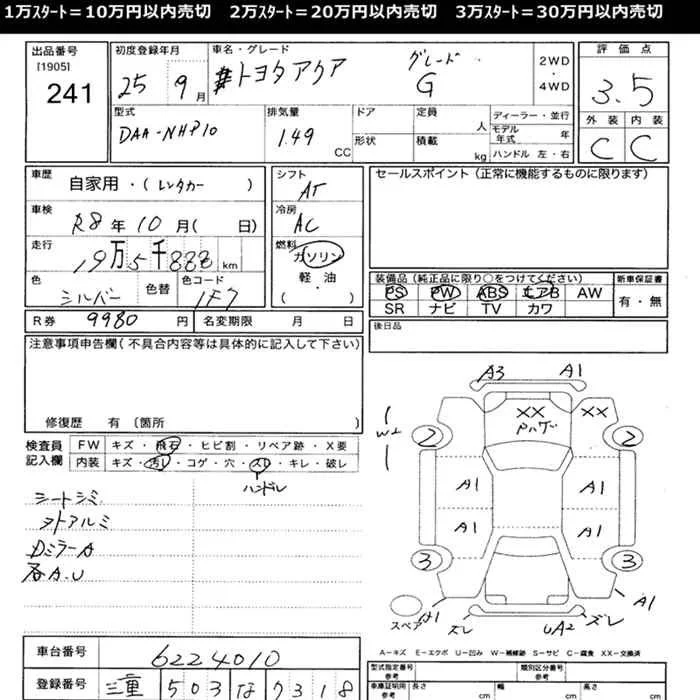 1万ｽﾀｰﾄ＝10万円以内売切　2万ｽﾀｰﾄ＝20万円以内売切　3万ｽﾀｰﾄ＝30万円以内売切
出品番号 初度登録年月 車名・グレード グレード 2WD・4WD 評価点
[1905] 241 25 9月 トヨタアクア G 3.5
型式 排気量 ドア 定員 人 ディーラー・並行 外装 内装
DAA-NHP10 1.49 CC 形状 積載 kg モデル年式 年 C C
ハンドル 左・右
車歴 自家用・(レンタカー ) シフト AT セールスポイント(正常に機能するものに限ります)
車検 R8年10月( 日) 冷房 AC
走行 19万5千888km 燃料 ガソリン・軽・油 ( )
色 シルバー 色替 色コード 1F7
装備品(純正品に限り○をつけてください) 新車保証書
PS PW ABS エアB AW 有・無
SR ナビ TV カワ
R券 9980円 名変期限 月 日 後日品
注意事項申告欄(不具合内容等は具体的に記入して下さい)
修復歴 有 〔箇所 〕
検査員記入欄 FW キズ・飛石・ヒビ割・リペア跡・X要
内装 キズ・汚レ・コゲ・穴・スレ・キレ・破レ
ハンドレ
シートシミ
フトアルミ
DミラーA
各A.U
A3 A1
XX XX
Pハゲ
W2
2 2
A1 A1
A1 A1
3 3
A1 A1
スペア ズレ UA2 ズレ
A－キズ E－エクボ U－凹み W－補修跡 S－サビ C－腐食 XX－交換済
車台番号 6224010 型式指定番号 参考 類別区分番号 参考
登録番号 三重 503 な 7318 車庫証明用 参考 長さ cm 幅 cm 高さ cm